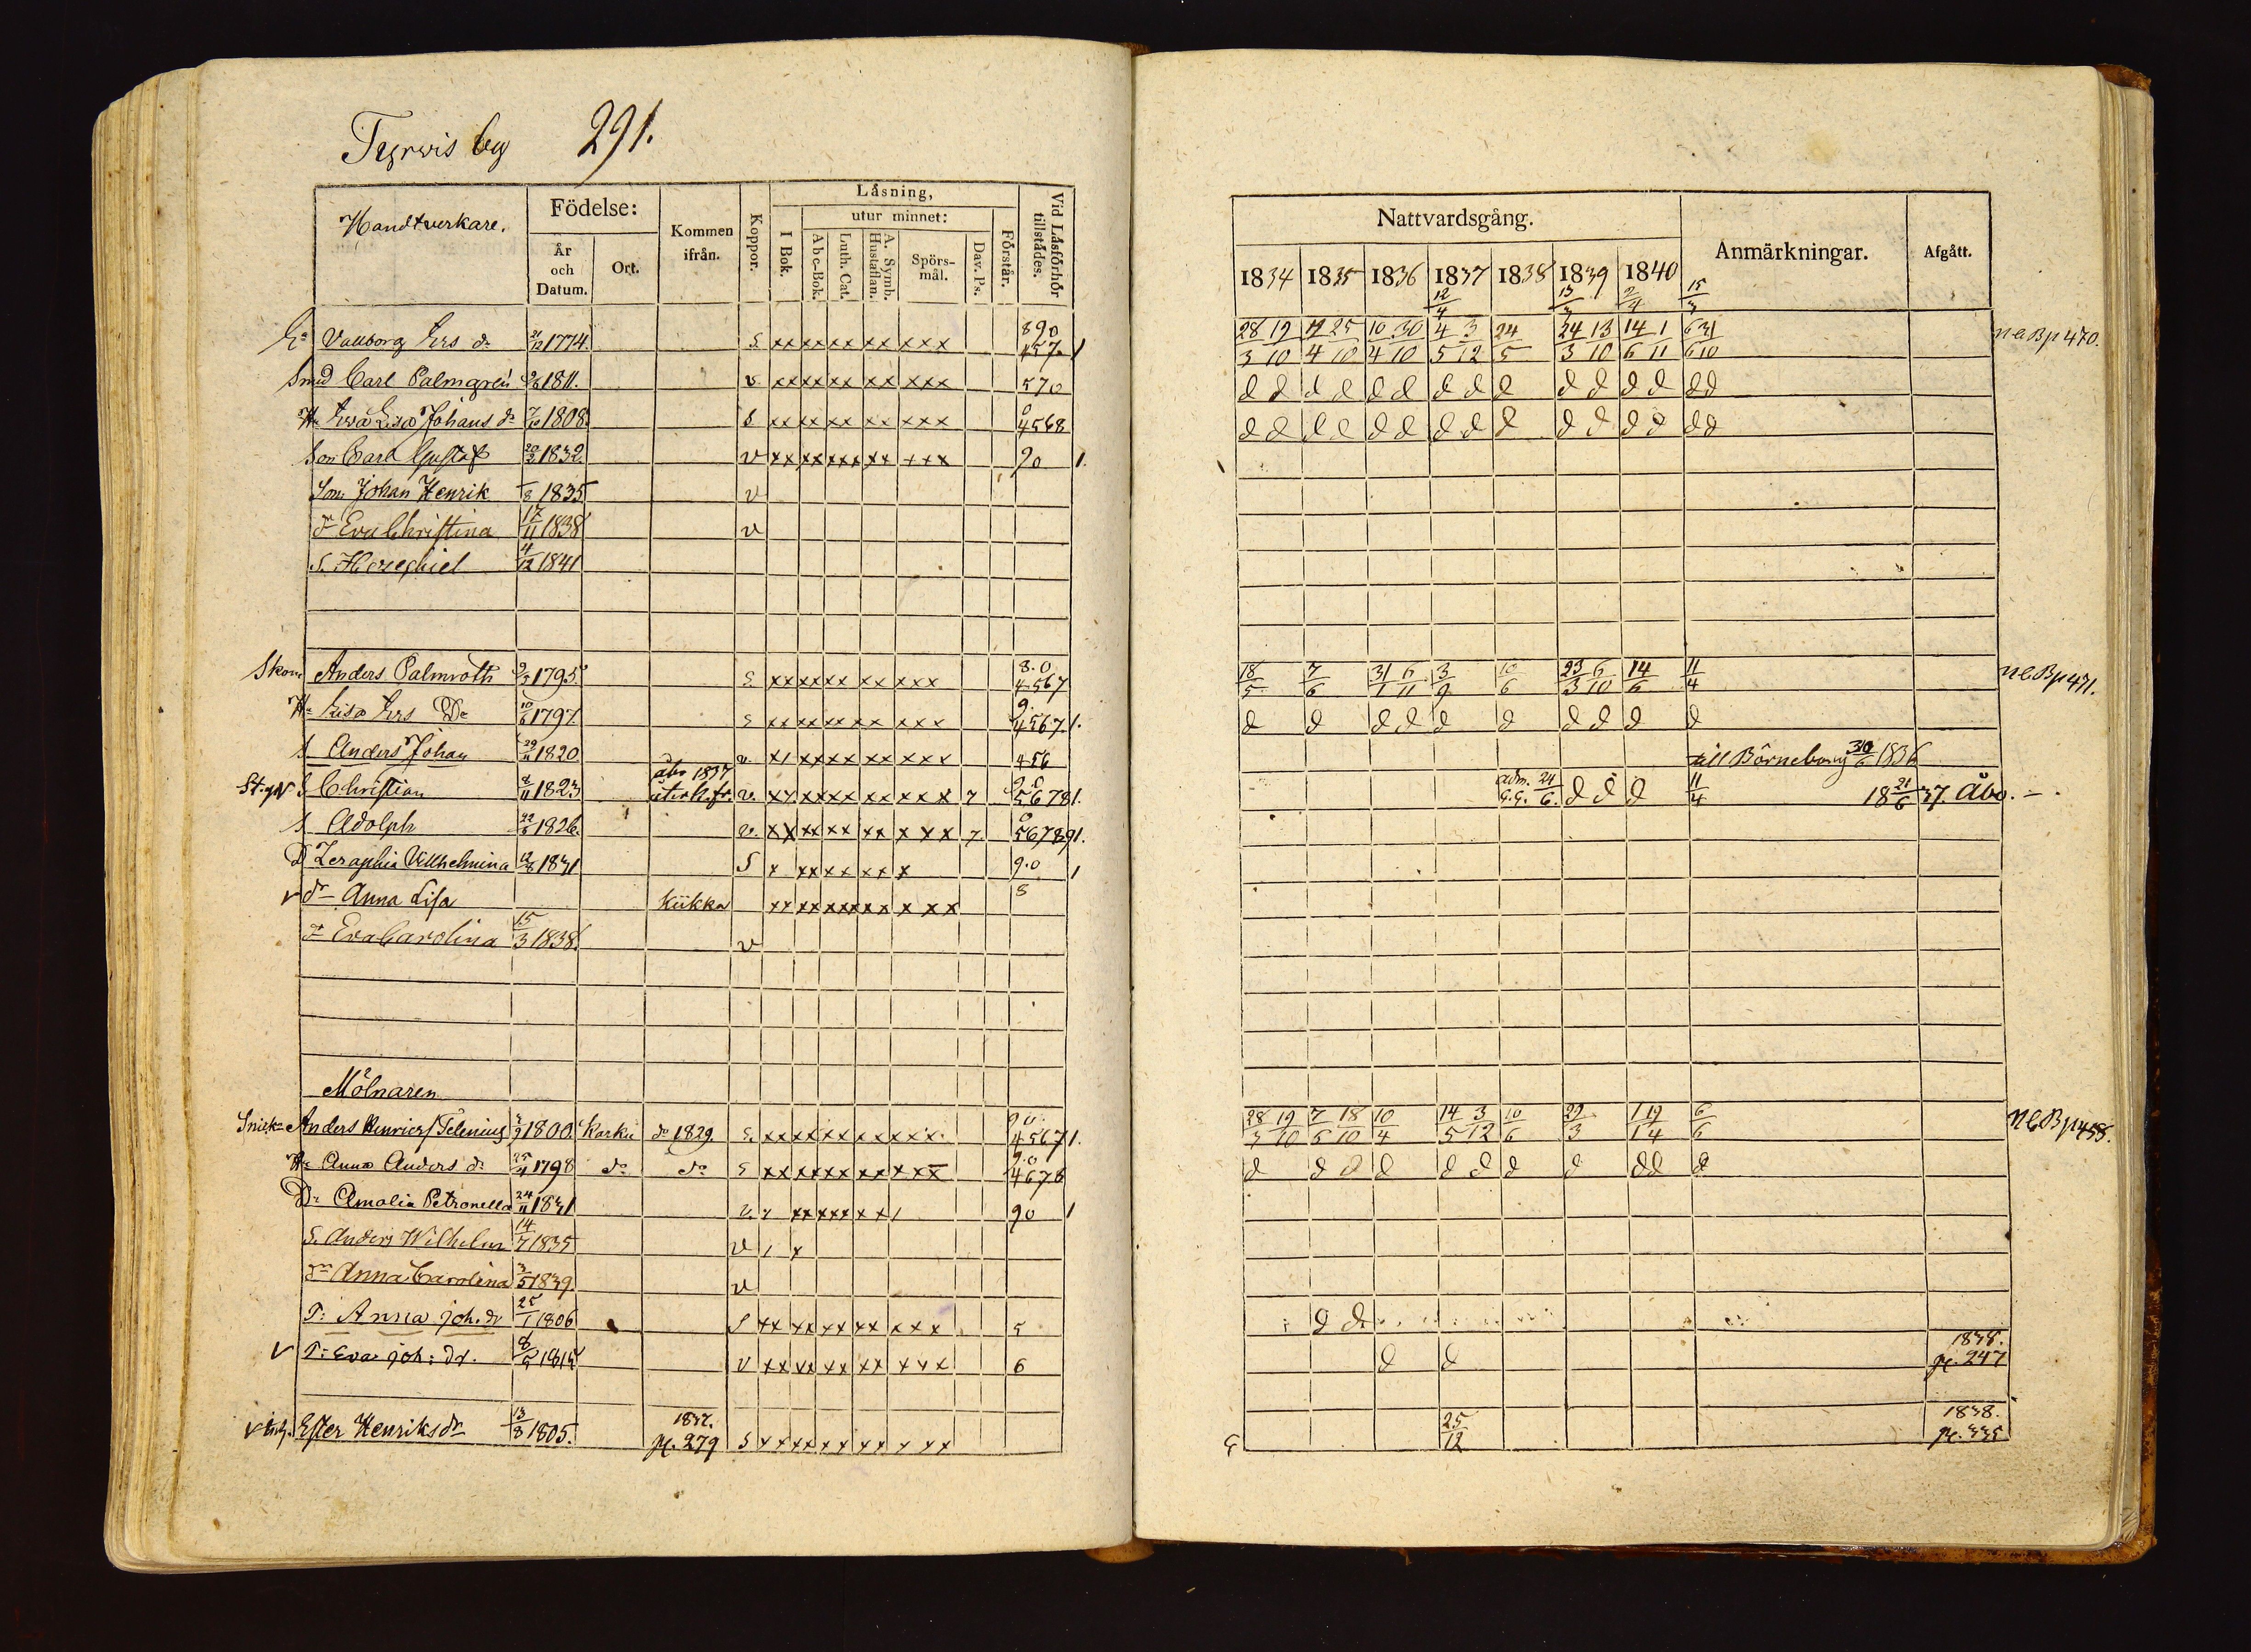 Tyrvis by 291.
Handtverkare. Födelse: År och Datum. Ort. Kommen ifrån. Koppor. Läsning, I Bok. utur minnet: Abc-Bok. Luth. Cat. A. Symb. Hustaflan. Spörsmål. Dav. Ps. Förstår. Vid Läsförhör tillstådes.
Valborg Ers dr 21/12 1774. S xx xx xx xx xxx 890 457. 1
Smed Carl Palmgren 1811. v. xx xx xx xx xxx 570
Hu Eva Lisa Johans dr 1808. S xx xx xx xx xxx 0 4568
Son Carl Gustaf 20/2 1832. v xx xx xxx xx xxx 90 1.
Son Johan Henrik 1835 v
dr Eva Christina 17/11 1838 v
S. Hezechiel 4/12 1841
Skom Anders Palmroth 1795. S xx xx xx xx xxx 8.0 4567
Hu Lisa Ers Dr 10/6 1797 S xx xx xx xx xxx 9. 4567. 1.
S Anders Johan 29/11 1820 v. x1 xx xx xx xxx 456
S Christian 8/11 1823 åbo 1837 v. xx xx xx xx xxx 7 5678 1.
S Adolph 22/6 1826. v. xx xx xx xx x xx 7. 0 56789 1.
D Zeraphia Vilhelmina 12/8 1831 S x xx xx xx x 9.0 1
v dr Anna Lisa Kiikka xx xx xxx xx x xx 5
dr Eva Carolina 15/3 1838. v
Mölnaren
Anders Henricss Telenius 1800. Karku dr 1829. S. xx xx xx xx xxx. 90 4567 1.
Hu Anna Anders dr 1798 do do S xx xx xx xx xxx 9.0 4678
Dr Amalia Petronella 24/11 1831 v. x xx xxx x x 1 90 1
S. Anders Wilhelm 14/7 1835 v 1 x
dr Anna Carolina 3/5 1839. v
P: Anna joh. dr 25/1 1806 S xx xx xx xx xxx 5
v P: Eva joh: dr. v xx xx xx xx xxx 6
v Inh. Ester Henriks dr 13/8 1805. 1837. p. 279 S xx xx xx xx x xx
Nattvardsgång. Anmärkningar. Afgått.
1834 1835 1836 1837 1838 1839 1840
12/4 13/3 2/4 15/3
28/3 19/10 12/4 25/10 10/4 30/10 4/5 3/12 24/5 24/3 13/10 14/6 1/11 6/6 31/10 n e B p 470.
d d d d d d d d d d d d d d d
d d d d d d d d d d d d d d d
18/5 7/6 31/1 6/11 3/9 10/6 23/3 6/10 14/6 11/4 n e B p 471.
d d d d d d d d d d
till Börneborg 30/6 1836
adm. 24/6 d d d 11/4 18 21/6 37. Åbo.
28/3 19/10 7/6 18/10 10/4 14/5 3/12 10/6 29/3 1/1 19/4 6/6 n e B p 458.
d d d d d d d d d d d
d d
d d 1838. p. 247
25/12 1838. p. 335